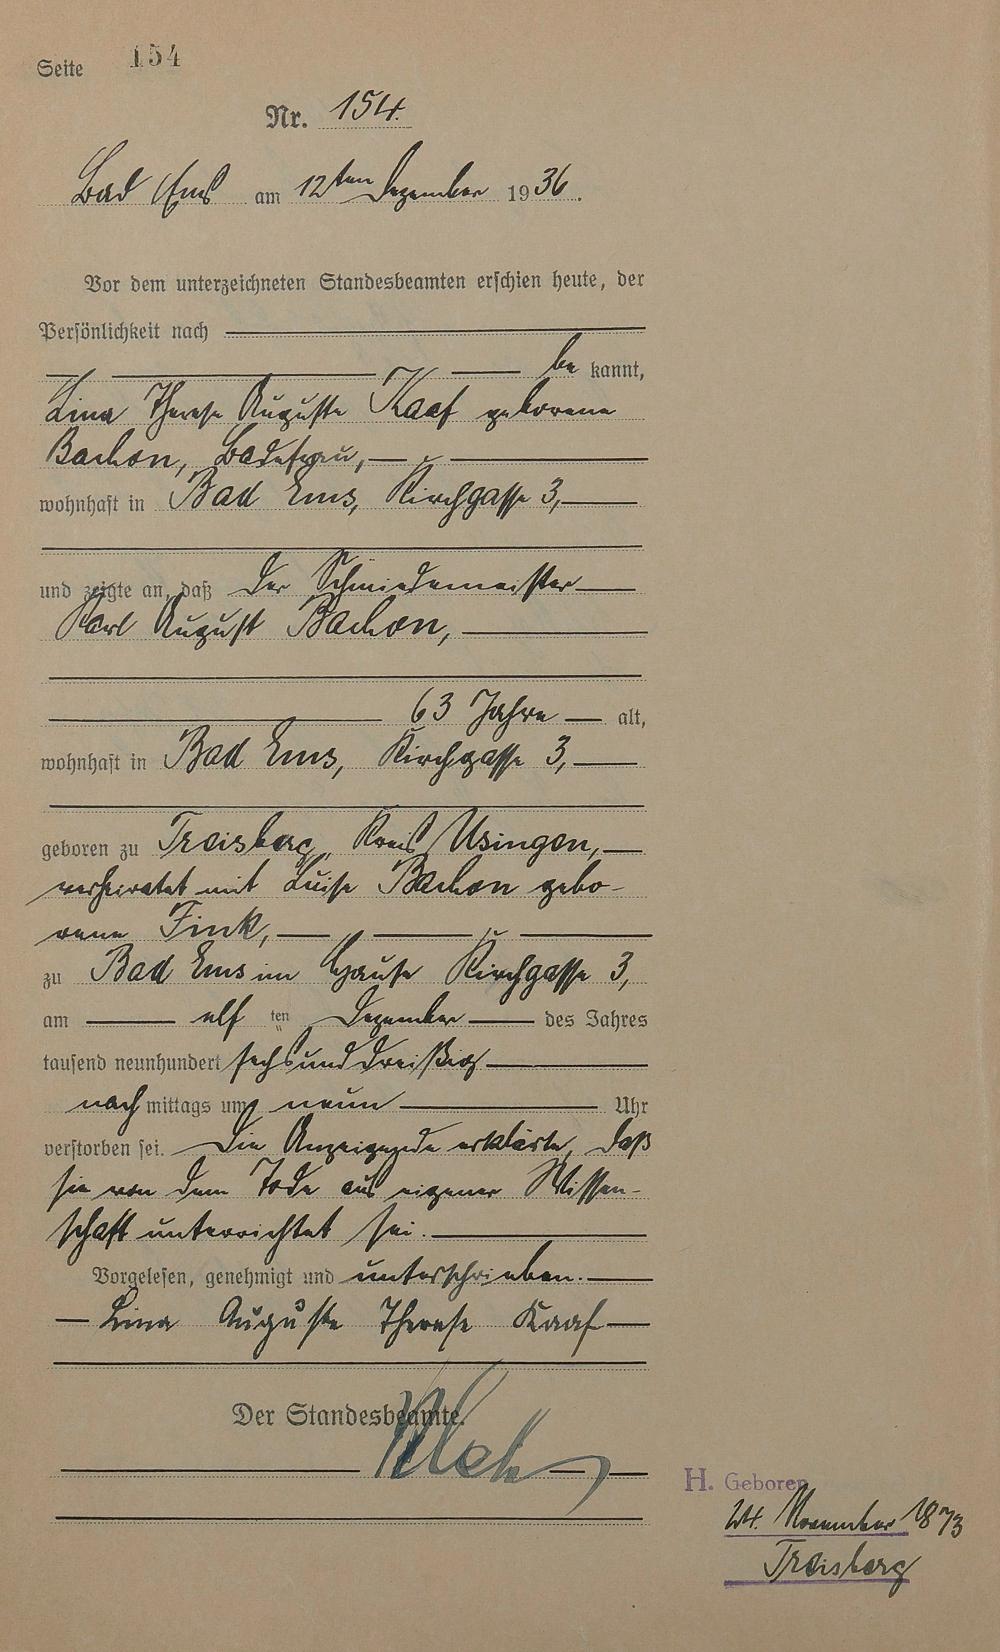 Seite 154
Nr. 154.
Bad Ems am 12ten Dezember 1936.
Vor dem unterzeichneten Standesbeamten erschien heute, der
Persönlichkeit nach
be kannt,
Lina Therese Auguste Kaaf geborene
Bachon, Badefrau,
wohnhaft in Bad Ems, Kirchgasse 3,
und zeigte an, daß der Schmiedemeister
Karl August Bachon,
63 Jahre alt,
wohnhaft in Bad Ems, Kirchgasse 3,
geboren zu Treisberg, Kreis Usingen,
verheiratet mit Luise Bachon gebo-
rene Fink,
zu Bad Ems im Hause Kirchgasse 3,
am elf ten Dezember des Jahres
tausend neunhundert sechsunddreißig
nach mittags um neun Uhr
verstorben sei. Die Anzeigende erklärte, daß
sie von dem Tode aus eigener Wissen-
schaft unterrichtet sei.
Vorgelesen, genehmigt und unterschrieben.
Lina Auguste Therese Kaaf
Der Standesbeamte.
H. Geboren
24. November 1873
Treisberg